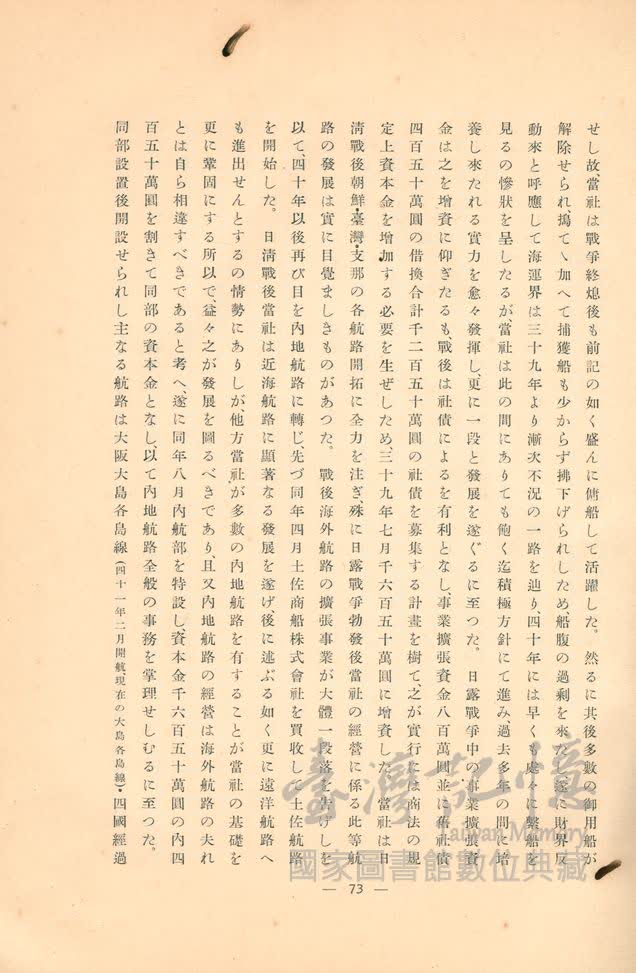 せし故當社は戰爭終熄後も前記の如く盛んに傭船して活躍した。 然るに其後多數の御用船が
解除せられ、搗て〻加へて捕獲船も少からず拂下げられしため、船腹の過剩を來たし、遂に財界反
動來と呼應して海運界は三十九年より漸次不況の一路を辿り、四十年には早くも處々に繫船を
見るの慘狀を呈したるが、當社は此の間にありても飽く迄積極方針にて進み、過去多年の間に培
養し來たれる實力を愈々發揮し、更に一段と發展を遂ぐるに至つた。 日露戰爭中の事業擴張資
金は之を增資に仰ぎたるも、戰後は社債によるを有利となし、事業擴張資金八百萬圓並に舊社債
四百五十萬圓の借換合計千二百五十萬圓の社債を募集する計畫を樹て、之が實行には商法の規
定上資本金を增加する必要を生ぜしため、三十九年七月千六百五十萬圓に增資した。 當社は日
淸戰後朝鮮・臺灣・支那の各航路開拓に全力を注ぎ、殊に日露戰爭勃發後當社の經營に係る此等航
路の發展は實に目覺ましきものがあつた。 戰後海外航路の擴張事業が大體一段落を告げしを
以て、四十年以後再び目を內地航路に轉じ、先づ同年四月土佐商船株式會社を買收して土佐航路
を開始した。 日淸戰後當社は近海航路に顯著なる發展を遂げ、後に述ぶる如く更に遠洋航路へ
も進出せんとするの情勢にありしが、他方當社が多數の內地航路を有することが當社の基礎を
更に鞏固にする所以で、益々之が發展を圖るべきであり、且又內地航路の經營は海外航路の夫れ
とは自ら相違すべきであると考へ、遂に同年八月內航部を特設し、資本金千六百五十萬圓の內四
百五十萬圓を割きて同部の資本金となし、以て內地航路全般の事務を掌理せしむるに至つた。
同部設置後開設せられし主なる航路は大阪大島各島線(四十一年二月開航現在の大島各島線)・四國經過
— 73 —
臺灣記憶
Taiwan Memory
國家圖書館數位典藏